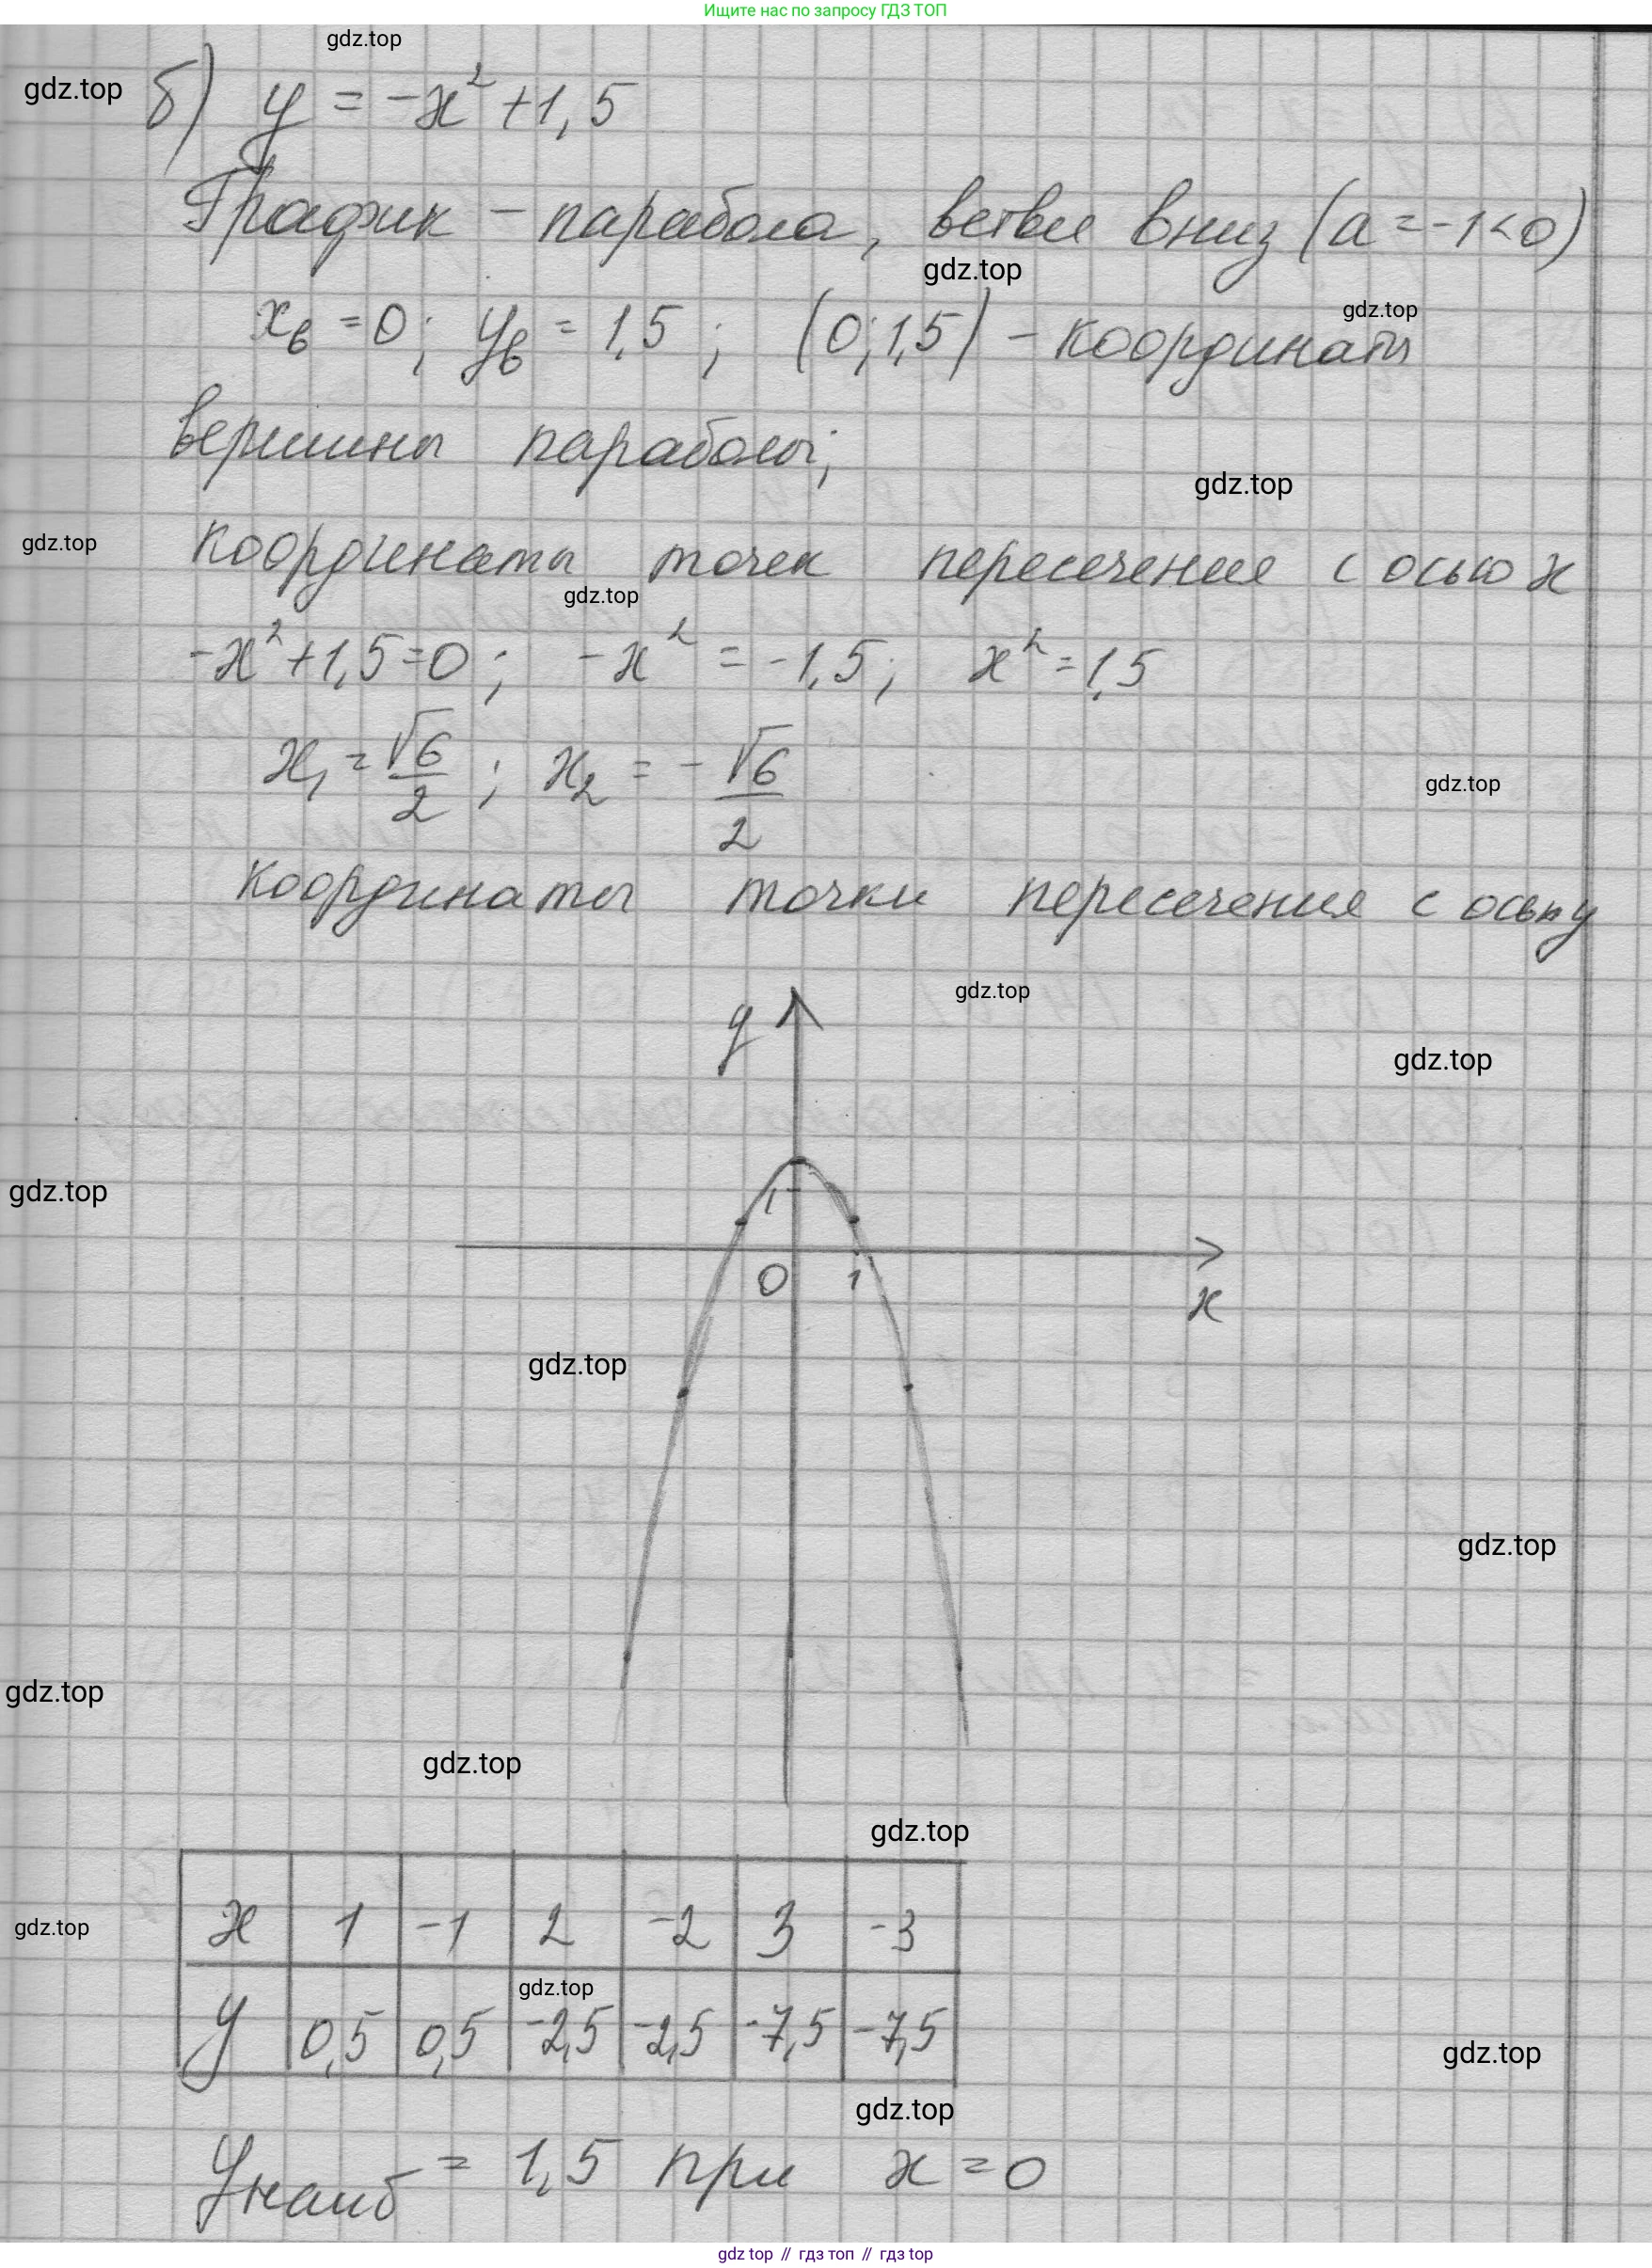 Ищите нас по запросу ГДЗ ТОП
gdz.top
gdz.top
б) y = -x² + 1,5
График - парабола, ветви вниз (a = -1 < 0)
gdz.top
gdz.top
xв = 0; yв = 1,5; (0; 1,5) - координаты
вершины параболы;
gdz.top
gdz.top
координаты точек пересечения с осью x
gdz.top
-x² + 1,5 = 0; -x² = -1,5; x² = 1,5
x₁ = √6/2; x₂ = -√6/2
gdz.top
координаты точки пересечения с осью y
gdz.top
y
gdz.top
gdz.top
1
0 1
x
gdz.top
gdz.top
gdz.top
gdz.top
gdz.top
x 1 -1 2 -2 3 -3
gdz.top
gdz.top
y 0,5 0,5 -2,5 -2,5 -7,5 -7,5
gdz.top
gdz.top
yнаиб = 1,5 при x = 0
gdz top // гдз топ // гдз top